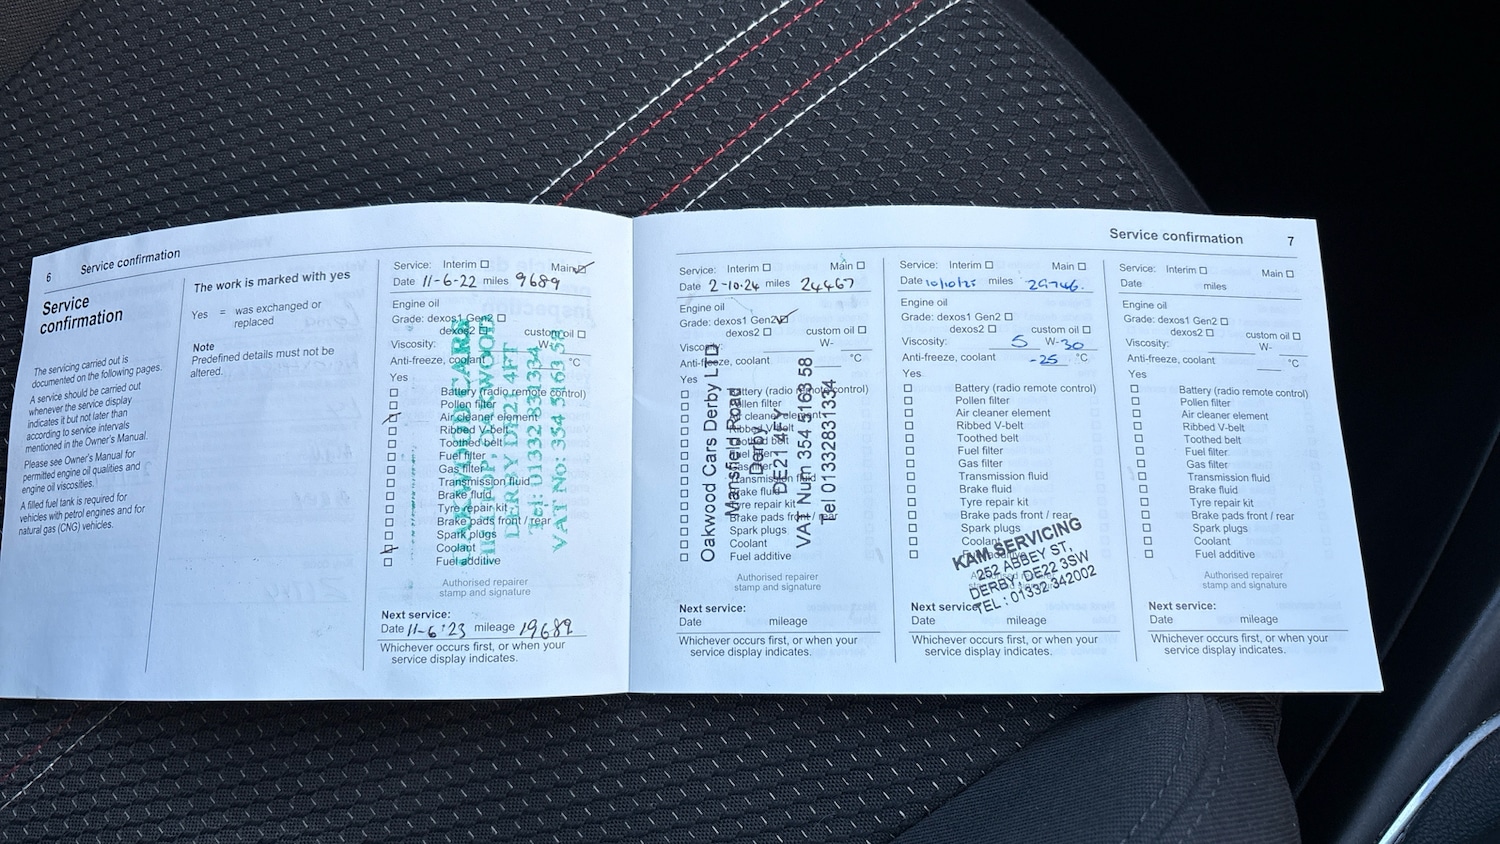 6 Service confirmation
Service
confirmation
The servicing carried out is
documented on the following pages.
A service should be carried out
whenever the service display
indicates it but not later than
according to service intervals
mentioned in the Owner's Manual.
Please see Owner's Manual for
permitted engine oil qualities and
engine oil viscosities.
A filled fuel tank is required for
vehicles with petrol engines and for
natural gas (CNG) vehicles.
The work is marked with yes
Yes = was exchanged or
replaced
Note
Predefined details must not be
altered.
Service: Interim Main
Date 11-6-22 miles 9689
Engine oil
Grade: dexos1 Gen2
dexos2 custom oil
Viscosity: W-
Anti-freeze, coolant °C
Yes
Battery (radio remote control)
Pollen filter
Air cleaner element
Ribbed V-belt
Toothed belt
Fuel filter
Gas filter
Transmission fluid
Brake fluid
Tyre repair kit
Brake pads front / rear
Spark plugs
Coolant
Fuel additive
OAKWOOD CARS
DERBY DE21 4FT
Tel: 01332 831334
VAT No: 354 5163 58
Authorised repairer
stamp and signature
Next service:
Date 11-6-23 mileage 19689
Whichever occurs first, or when your
service display indicates.
Service confirmation 7
Service: Interim Main
Date 2-10-24 miles 24467
Engine oil
Grade: dexos1 Gen2
dexos2 custom oil
Viscosity: W-
Anti-freeze, coolant °C
Yes
Battery (radio remote control)
Pollen filter
Air cleaner element
Ribbed V-belt
Toothed belt
Fuel filter
Gas filter
Transmission fluid
Brake fluid
Tyre repair kit
Brake pads front / rear
Spark plugs
Coolant
Fuel additive
Oakwood Cars Derby LTD
Mansfield Road
Derby
DE21 4FY
VAT Num 354 5163 58
Tel 01332831334
Authorised repairer
stamp and signature
Next service:
Date mileage
Whichever occurs first, or when your
service display indicates.
Service: Interim Main
Date 10/10/25 miles 29746.
Engine oil
Grade: dexos1 Gen2
dexos2 custom oil
Viscosity: 5 W-30
Anti-freeze, coolant -25 °C
Yes
Battery (radio remote control)
Pollen filter
Air cleaner element
Ribbed V-belt
Toothed belt
Fuel filter
Gas filter
Transmission fluid
Brake fluid
Tyre repair kit
Brake pads front / rear
Spark plugs
Coolant
KAM SERVICING
252 ABBEY ST,
DERBY, DE22 3SW
TEL : 01332 342002
Next service:
Date mileage
Whichever occurs first, or when your
service display indicates.
Service: Interim Main
Date miles
Engine oil
Grade: dexos1 Gen2
dexos2 custom oil
Viscosity: W-
Anti-freeze, coolant °C
Yes
Battery (radio remote control)
Pollen filter
Air cleaner element
Ribbed V-belt
Toothed belt
Fuel filter
Gas filter
Transmission fluid
Brake fluid
Tyre repair kit
Brake pads front / rear
Spark plugs
Coolant
Fuel additive
Authorised repairer
stamp and signature
Next service:
Date mileage
Whichever occurs first, or when your
service display indicates.